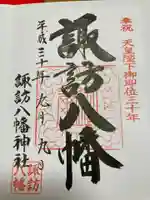 奉祝
天皇陛下御即位三十年
諏訪八幡
平成三十年九月九日
諏訪八幡神社
諏訪
八幡